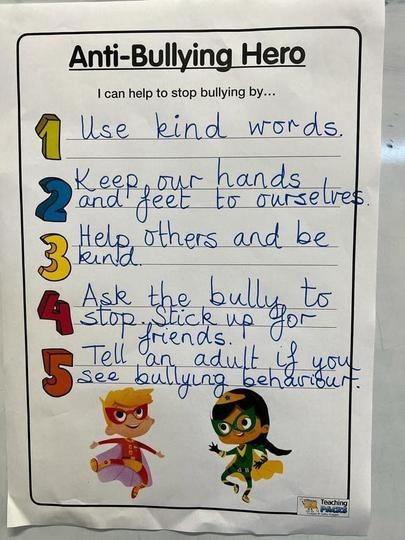 Anti-Bullying Hero
I can help to stop bullying by...
1 Use kind words.
2 Keep our hands
and feet to ourselves.
3 Help others and be
kind.
4 Ask the bully to
stop. Stick up for
friends.
5 Tell an adult if you
see bullying behaviour.
Teaching
PACKS